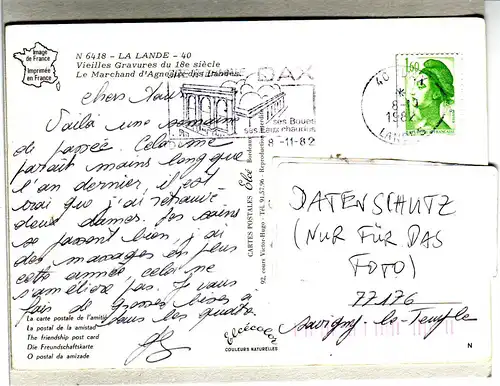 Image
de France
Imprimée
en France
N 6418 - LA LANDE - 40
Vieilles Gravures du 18e siècle
Le Marchand d'Agneaux des Landes
DAX
ses Boues
ses Eaux chaudes
8-11-82
40
8-11
1982
LANDES
1,60
chers
Voilà une semaine
de passée. Cela me
paraît moins long que
l'an dernier, il est
vrai que j'ai retrouvé
deux dames. Les soins
se passent bien, j'ai
des massages en plus
cette année, cela ne
s'améliore pas. Je vous
fais de grosses bises à
tous les quatre
CARTES POSTALES Elcé Bordeaux
92, cours Victor-Hugo - Tél. 91.57.96 - Reproduction interdite
DATENSCHUTZ
(NUR FÜR DAS
FOTO)
77176
Savigny-le-Temple
La carte postale de l'amitié
La postal de la amistad
The friendship post card
Die Freundschaftskarte
O postal da amizade
Elcécolor
COULEURS NATURELLES
N